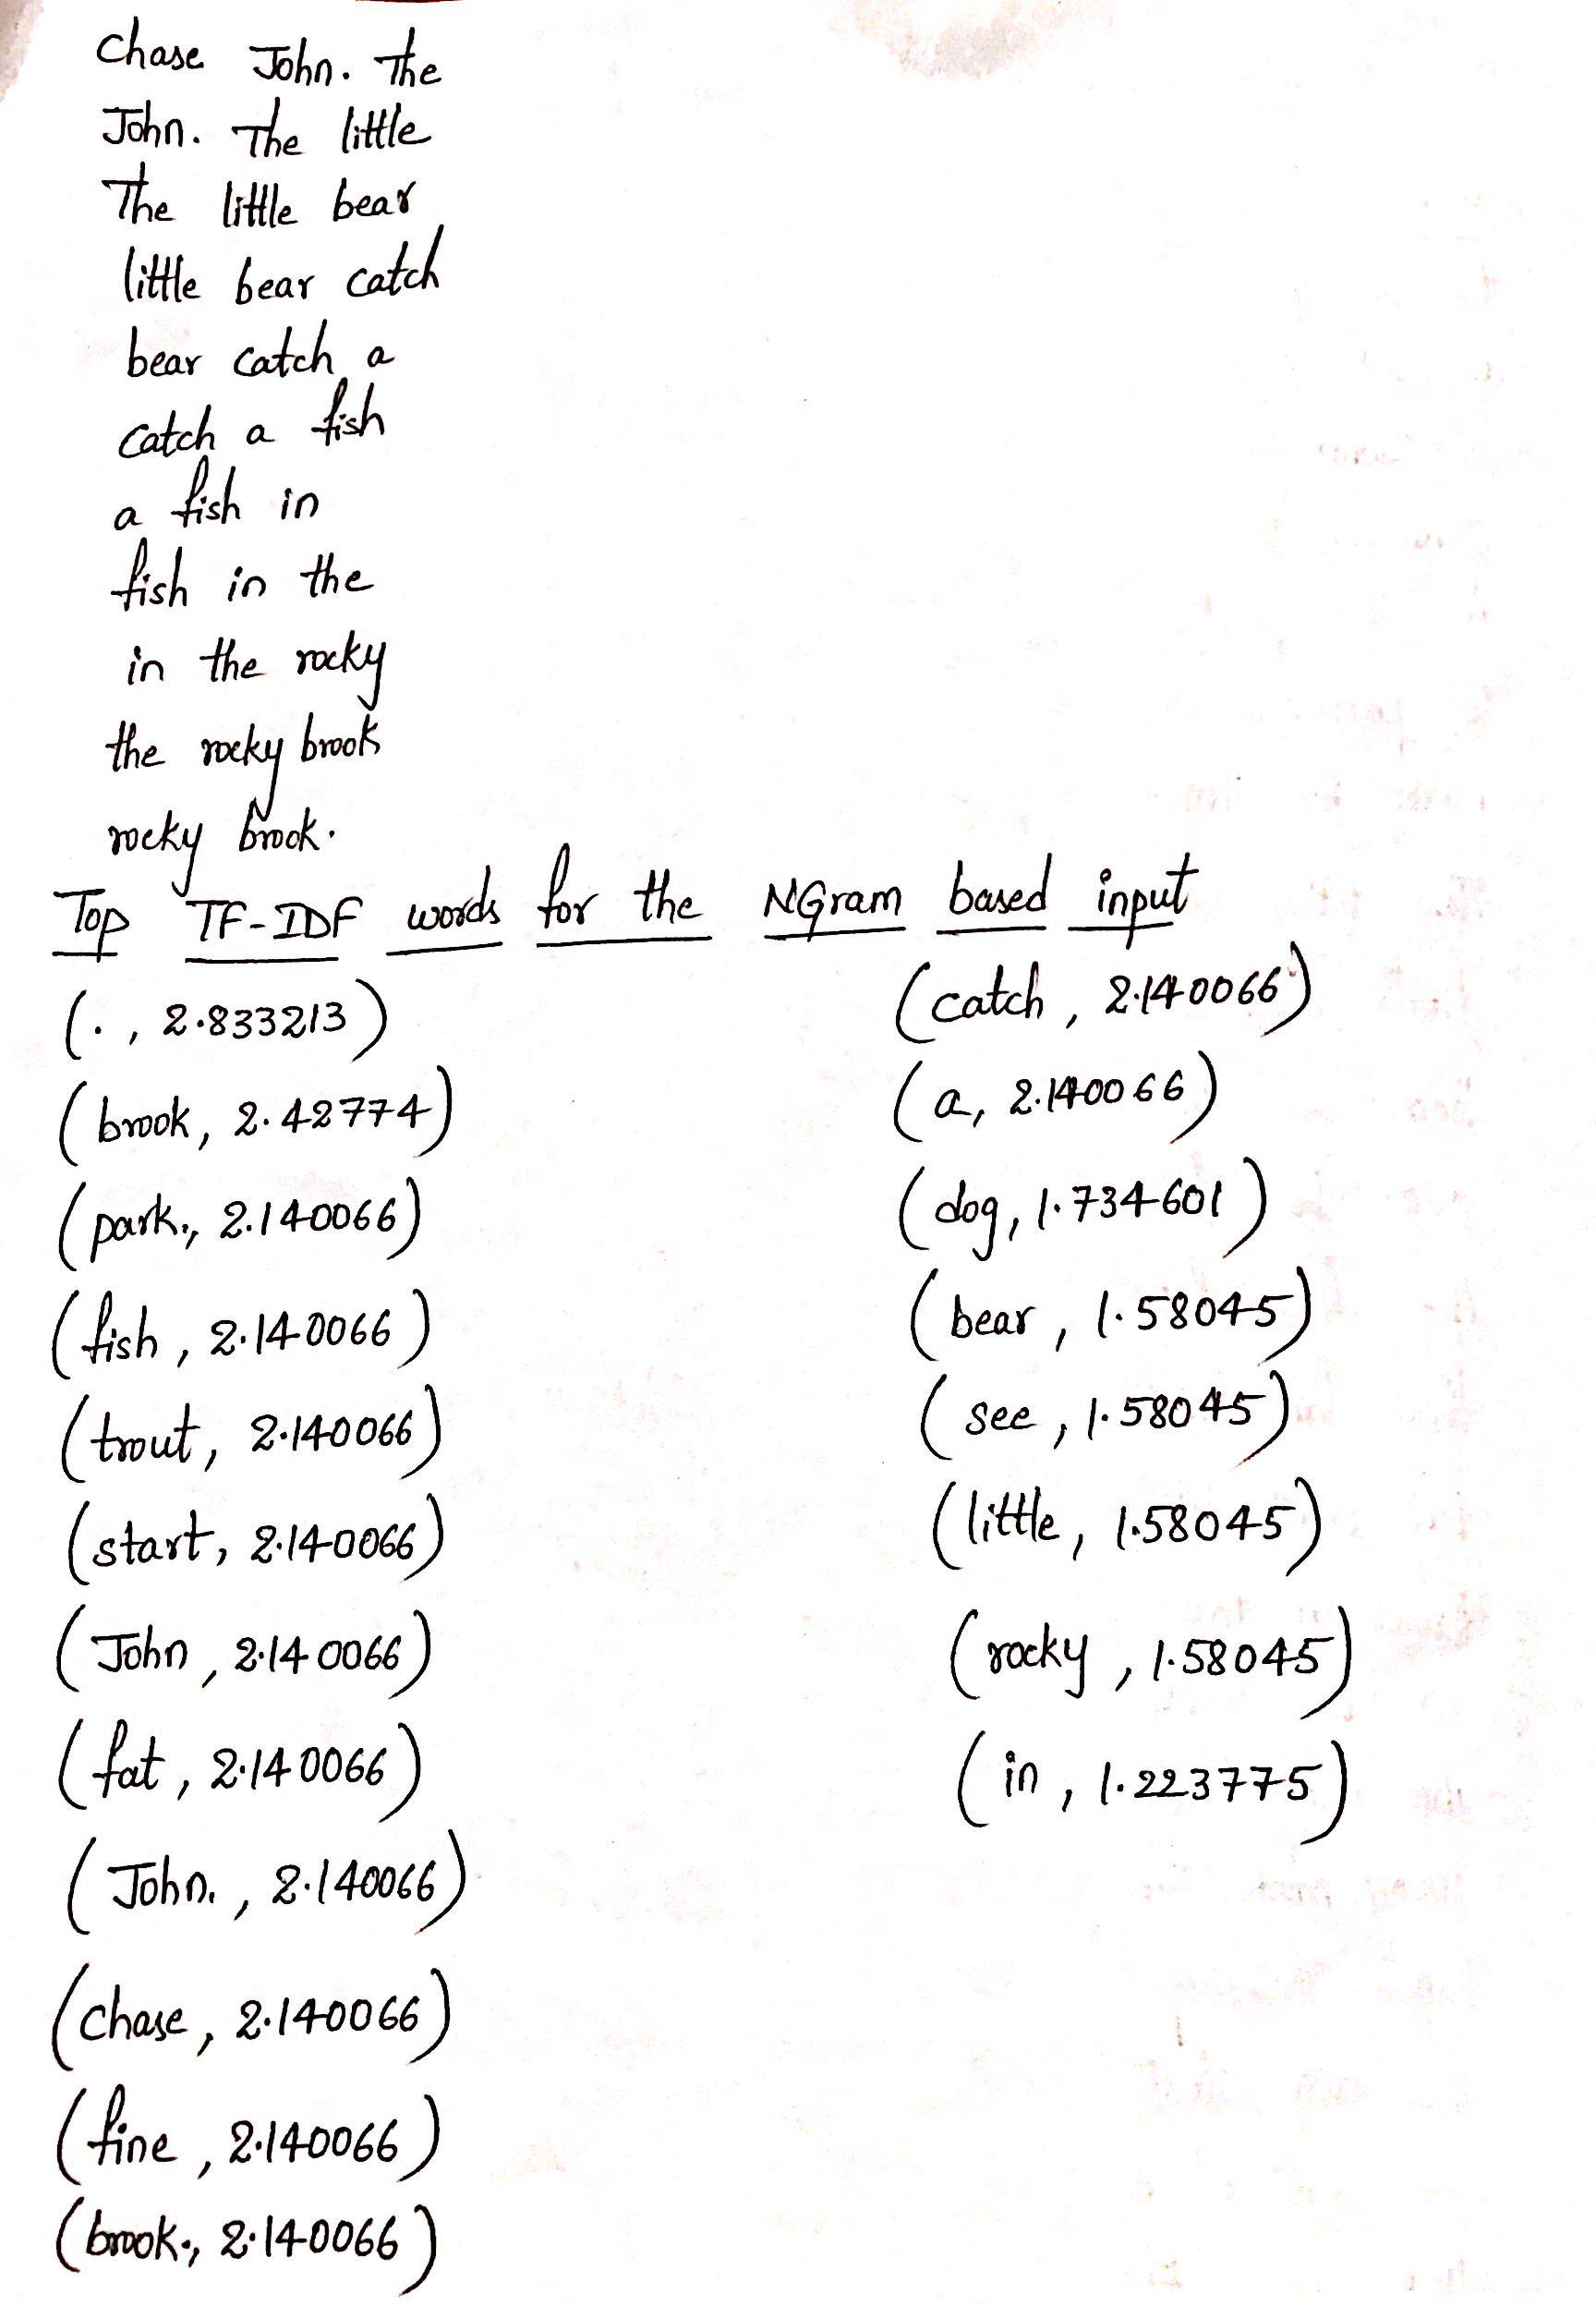 chase John. The
John. The little
The little bear
little bear catch
bear catch a
catch a fish
a fish in
fish in the
in the rocky
the rocky brook
rocky brook.
Top TF-IDF words for the NGram based input
(., 2.833213)
(brook, 2.42774)
(park., 2.140066)
(fish, 2.140066)
(trout, 2.140066)
(start, 2.140066)
(John, 2.140066)
(fat, 2.140066)
(John., 2.140066)
(chase, 2.140066)
(fine, 2.140066)
(brook., 2.140066)
(catch, 2.140066)
(a, 2.140066)
(dog, 1.734601)
(bear, 1.58045)
(see, 1.58045)
(little, 1.58045)
(rocky, 1.58045)
(in, 1.223775)